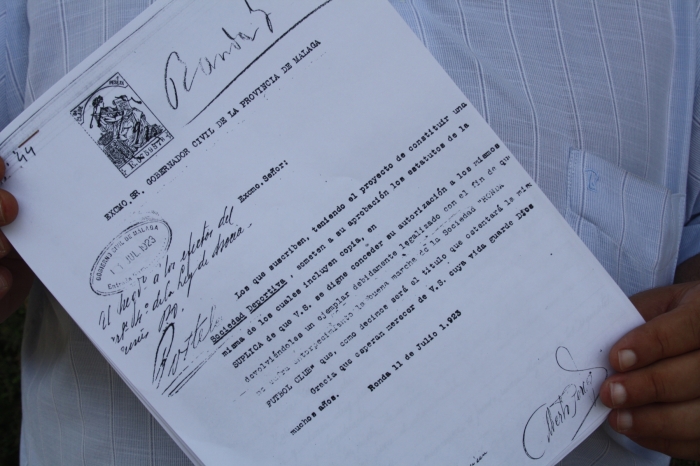 Ronda
44
EXCMO. SR. GOBERNADOR CIVIL DE LA PROVINCIA DE MALAGA
Excmo. Señor:
GOBIERNO CIVIL DE MALAGA
JUL 1923
El Juego a los efectos del
de la ley de
Los que suscriben, teniendo el proyecto de constituir una
Sociedad Deportiva, someten a su aprobación los estatutos de la
misma de los cuales incluyen copia, en
SUPLICA de que V.S. se digne conceder su autorización a los mismos
devolviéndoles un ejemplar debidamente legalizado con el fin de que
no vulva entorpecimiento la buena marcha de la Sociedad "RONDA
FUTBOL CLUB" que, como decimos será el título que ostentará la mis
Gracia que esperan merecer de V.S. cuya vida guarde Dios
muchos años.
Ronda 11 de Julio 1.923